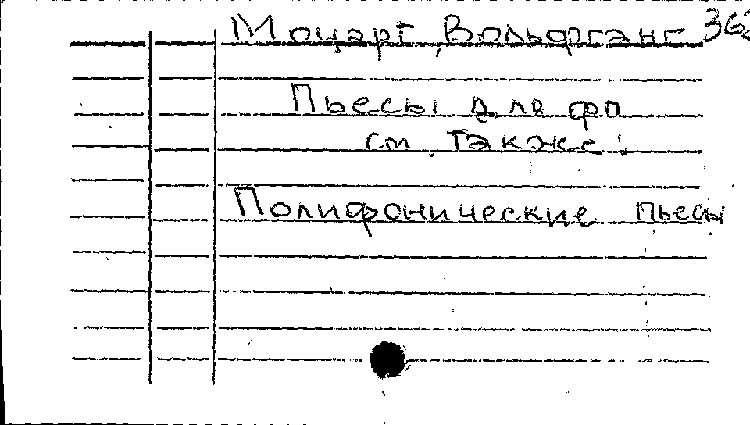 Моцарт, Вольфганг
Пьесы для фо
см. также:
Полифонические пьесы